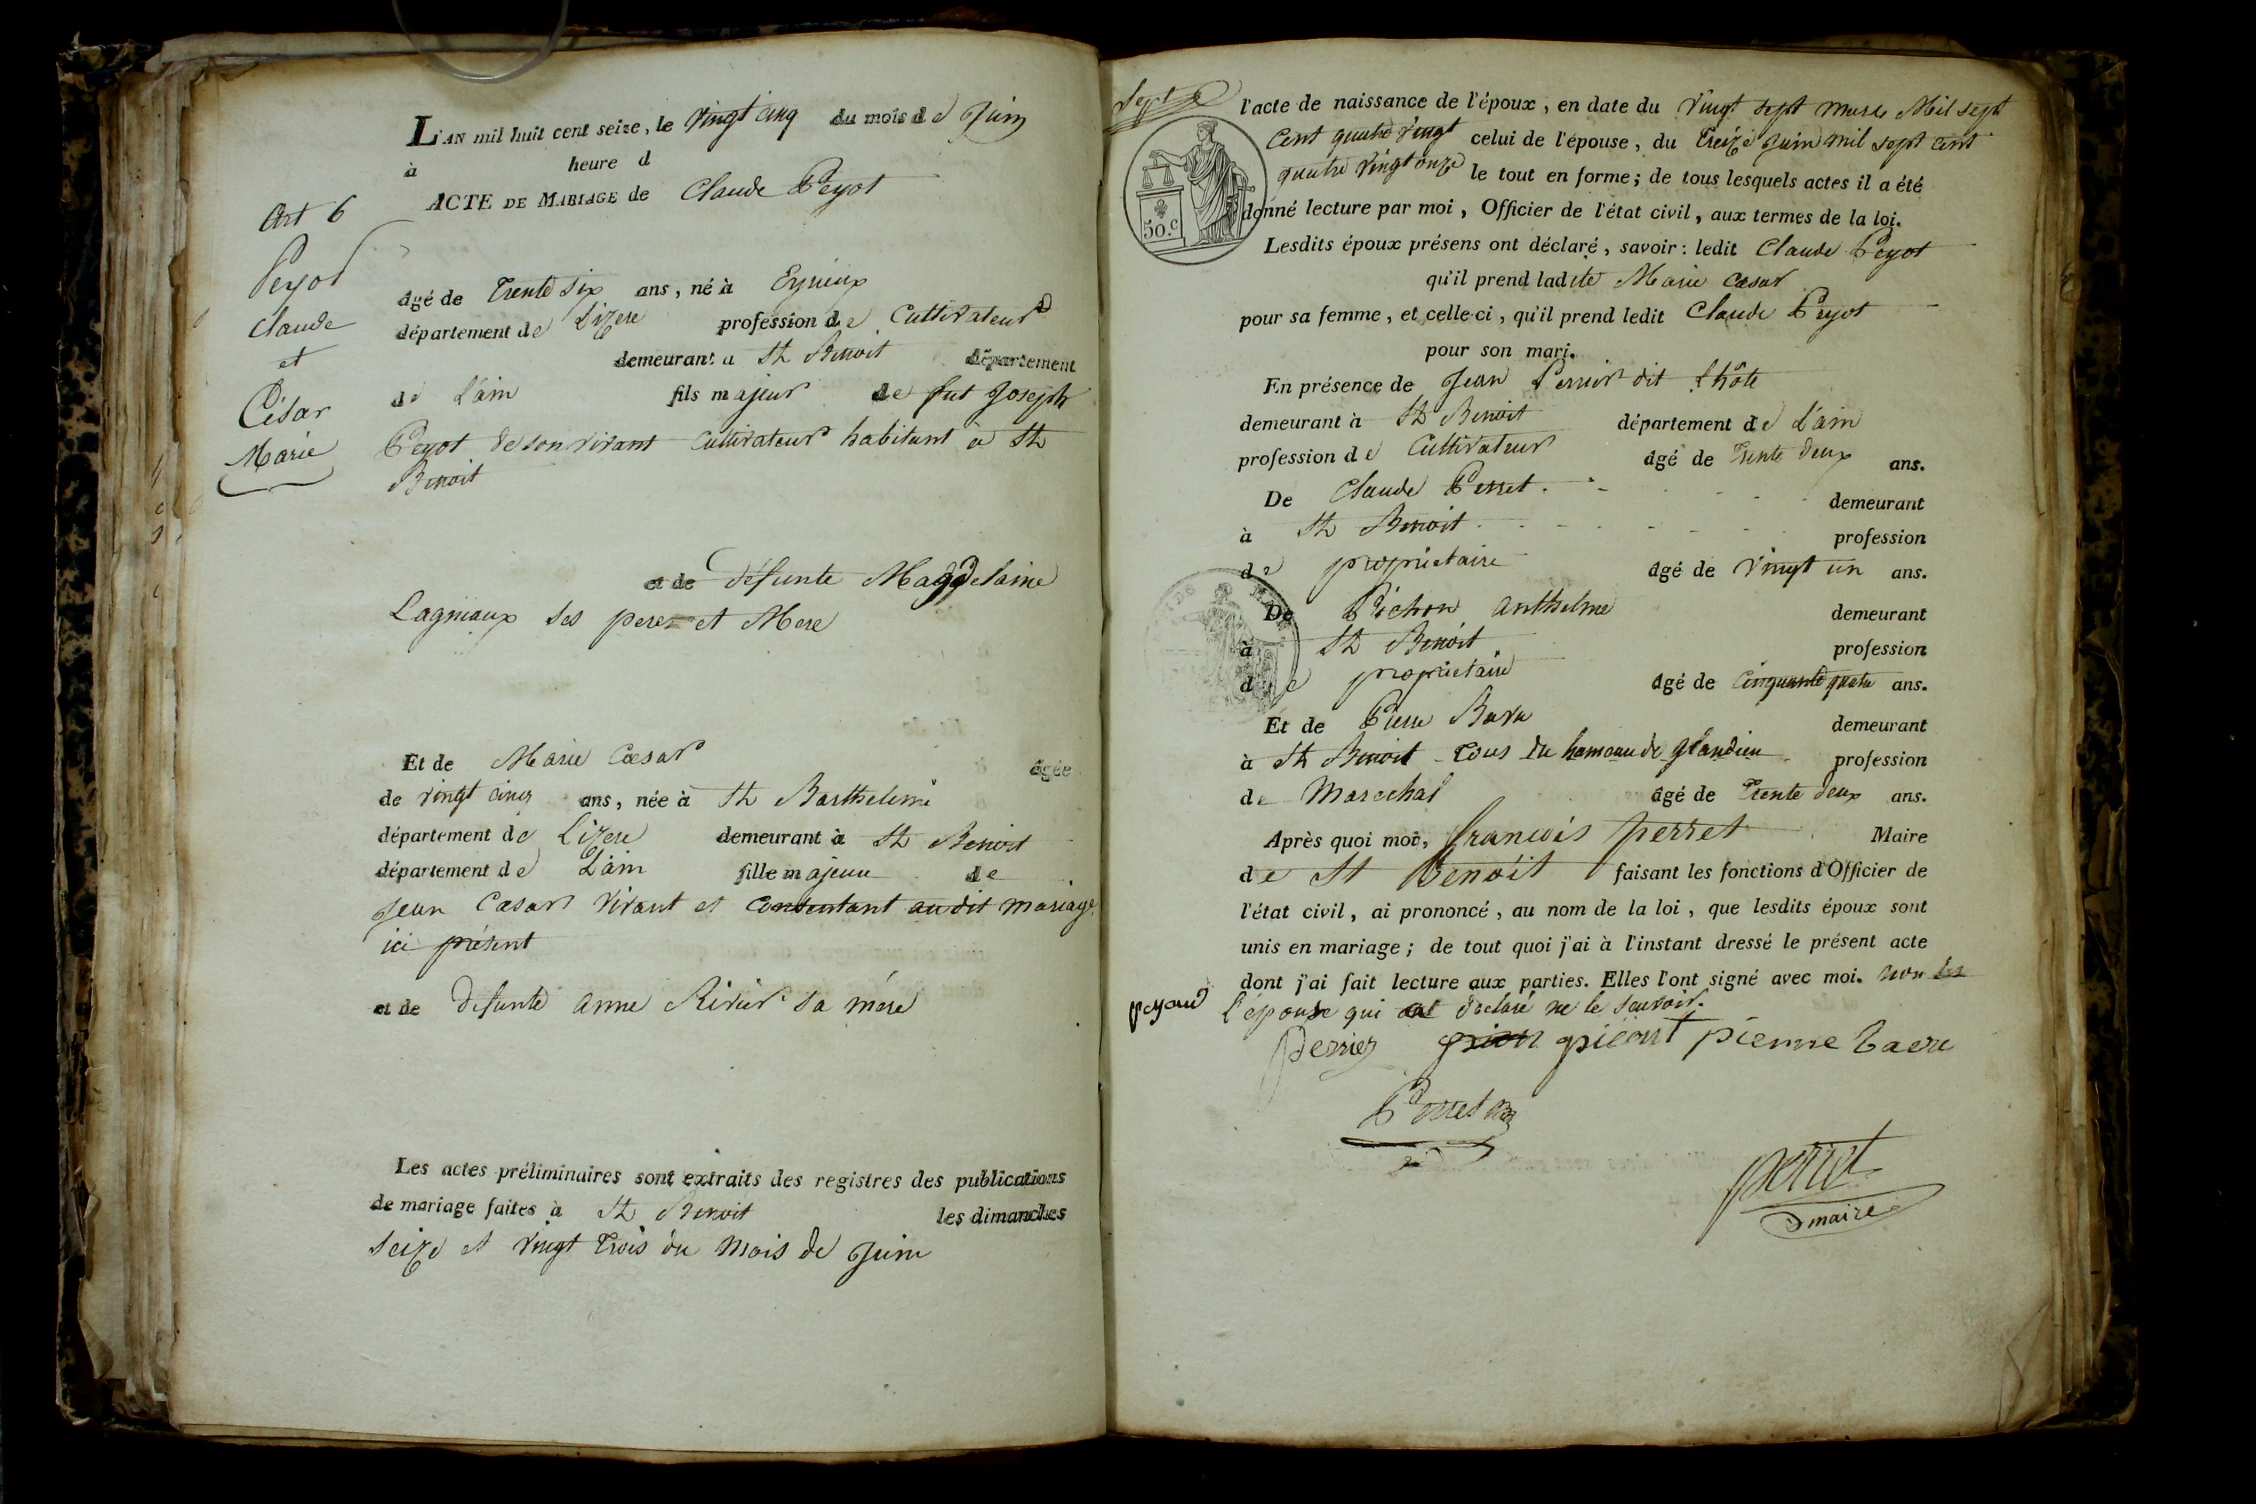 L'AN mil huit cent seize, le vingt cinq du mois de Juin
à heure d
ACTE DE MARIAGE de Claude Peyot
Art 6
Peyod
Claude
et
César
Marie
âgé de trente six ans, né à Eynieux
département de Lizere profession de Cultivateur
demeurant à St Benoit département
de L'ain fils majeur de fut Joseph
Peyot de son vivant cultivateur habitant à St
Benoit
et de défunte Magdelaine
Lagniaux ses peres et Mere
Et de Marie Cæsar âgée
de vingt cinq ans, née à St Barthelemi
département de Lizere demeurant à St Benoit
département de L'ain fille majeure de
Jean Cæsar vivant et consentant audit mariage
ici présent
et de défunte anne Rivier sa mére
Les actes préliminaires sont extraits des registres des publications
de mariage faites à St Benoit les dimanches
seize et vingt trois du mois de Juin
Sept
l'acte de naissance de l'époux, en date du vingt sept mars Mil sept
cent quatre vingt celui de l'épouse, du treize Juin mil sept cent
quatre vingt onze le tout en forme; de tous lesquels actes il a été
donné lecture par moi, Officier de l'état civil, aux termes de la loi.
50.c
Lesdits époux présens ont déclaré, savoir: ledit Claude Peyot
qu'il prend ladite Marie Cæsar
pour sa femme, et celle-ci, qu'il prend ledit Claude Peyot
pour son mari.
En présence de Jean Perrier dit L'hôte
demeurant à St Benoit département de L'ain
profession de Cultivateur âgé de trente deux ans.
De Claude Perret demeurant
à St Benoit profession
de propriétaire âgé de vingt un ans.
De Pichon anthelme demeurant
à St Benoit profession
de propriétaire âgé de cinquante quatre ans.
Et de Pierre Bavu demeurant
à St Benoit tous du hameau de glandieu profession
de Marechal âgé de trente deux ans.
Après quoi moi, françois perret Maire
de St Benoit faisant les fonctions d'Officier de
l'état civil, ai prononcé, au nom de la loi, que lesdits époux sont
unis en mariage; de tout quoi j'ai à l'instant dressé le présent acte
dont j'ai fait lecture aux parties. Elles l'ont signé avec moi. non
l'épouse qui a déclaré ne le scavoir.
peyaud
perrier picont pienne
Perret
perret
maire